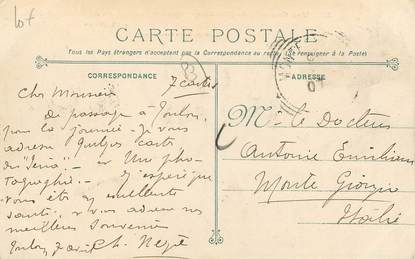 Lot
CARTE POSTALE
Tous les Pays étrangers n'acceptent pas la Correspondance au recto (Se renseigner à la Poste)
CORRESPONDANCE
ADRESSE
7 cartes
Cher Monsieur
De passage à Toulon,
pour la journée. Je vous
adresse quelques cartes
du "Iéna". et Une pho-
tographie. J'espère que
vous êtes en excellente
santé, & vous adresse mes
meilleurs souvenirs
Toulon, Ch. Negre
M. le Docteur
Antoine Emiliani
Monte Giorgio
Italie